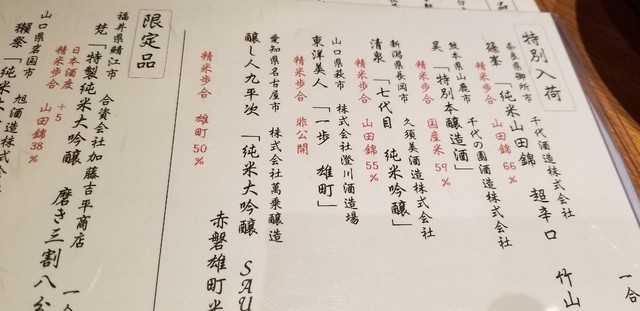 特別入荷
奈良県御所市 千代酒造株式会社
篠峯 「純米山田錦 超辛口 竹山
精米歩合 山田錦66% 一合
熊本県山鹿市 千代の園酒造株式会社
「特別本醸造酒」
精米歩合 国産米59%
新潟県長岡市 久須美酒造株式会社
清泉 「七代目 純米吟醸」
精米歩合 山田錦55%
山口県萩市 株式会社澄川酒造場
東洋美人 「一歩 雄町」
精米歩合 非公開
愛知県名古屋市 株式会社萬乗醸造
醸し人九平次 「純米大吟醸 SAU
赤磐雄町米
精米歩合 雄町50%
限定品
福井県鯖江市 合資会社加藤吉平商店
梵 「特製純米大吟醸 磨き三割八分
日本酒度 +5 一合
精米歩合 山田錦38%
山口県岩国市 旭酒造株式会社
獺祭 「純米